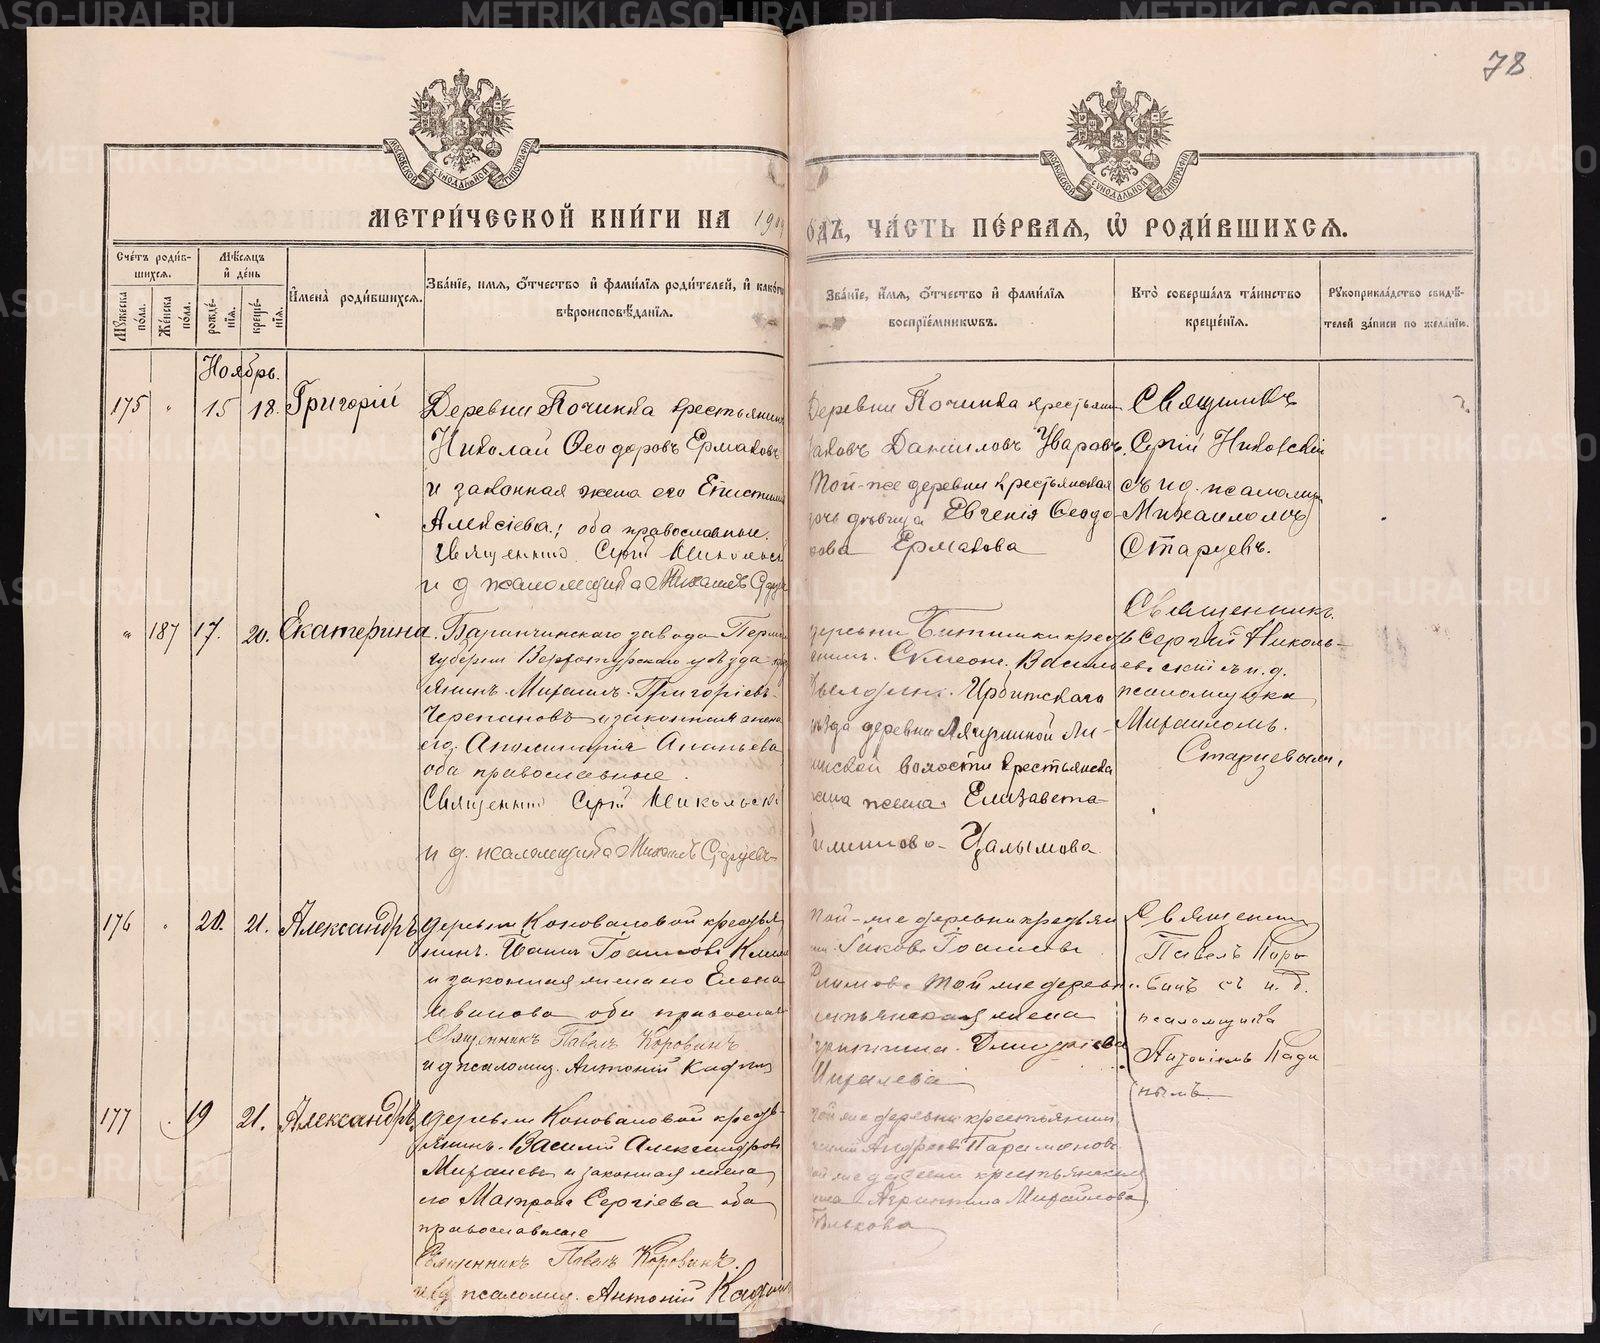 78
МОСКОВСКОЙ СѴНОДАЛЬНОЙ ТИПОГРАФІИ
МОСКОВСКОЙ СѴНОДАЛЬНОЙ ТИПОГРАФІИ
МЕТРИ́ЧЕСКОЙ КНИ́ГИ НА 190
ОДЪ, ЧА́СТЬ ПЕ́РВАЯ, Ѡ҆ РОДИ́ВШИХСЯ.
Сче́тъ роди́в-
шихся.
Мѣ́сяцъ
и҆ де́нь
Му́жеска по́ла.
Же́нска по́ла.
рожде́-
нія.
креще́-
нія.
И҆мена̀ роди́вшихся.
Зва́ніе, имя, ѻ҆́тчество и҆ фами́лія роди́телей, и҆ како́гѡ
вѣроисповѣ́данія.
Зва́ніе, и҆́мя, ѻ҆́тчество и҆ фами́лія
воспріе́мниковъ.
Кто̀ соверша́лъ та́инство
креще́нія.
Рꙋкоприкла́дство свидѣ́-
телей за́писи по жела́нію.
Ноябрь.
175 " 15 18. Григорій
Деревни Починка крестьянинъ
Николай Ѳеодоровъ Ермаковъ
и законная жена его Епистимія
Алексіева; оба православные.
Священникъ Сергій Никольскій
и д псаломщика Михаилъ Старцевъ
Деревни Починка крестьян
Даниловъ Уваровъ.
Той-же деревни крестьянская
дочь дѣвица Евгенія Ѳеодо-
рова Ермакова
Священникъ
Сергій Никольскій
съ и д. псаломщ.
Михаиломъ
Старцевъ.
" 187 17. 20. Екатерина.
Баранчинскаго завода Пермск
губерніи Верхотурскаго уѣзда кре
янинъ Михаилъ Григоріевъ
Черепановъ и законная жена
его Аполинарія Ананьева
оба православные.
Священникъ Сергій Никольскій
и д. псаломщика Михаилъ Старцевъ
деревни крест
Симеонъ Васильевъ
Ирбитскаго
уѣзда деревни
волости крестьянска
жена Елизавета
Цалымова.
Священникъ
Сергій Николь-
скій съ и. д.
псаломщика
Михаиломъ
Старцевымъ.
176 " 20. 21. Александръ
деревни Коноваловой крестья
нинъ Іоаннъ Іоанновъ
и законная жена его Елена
Иванова оба православ
Священникъ Павелъ Коровинъ
и д псаломщ. Антоній
той-же деревни крестьян
Іаковъ Іоанновъ
той же деревни
крестьянская жена
Димитріева
Михалева
Священникъ
Павелъ Коро
винъ съ и. д.
псаломщика
Антоніемъ
нымъ.
177 19 21. Александръ
деревни Коноваловой кресть-
янинъ Василій Александровъ
Михалевъ и законная жена
его Матрона Сергіева оба
православные
Священникъ Павелъ Коровинъ.
и д псаломщ. Антоній
той же деревни крестьянин
Андреевъ Парамоновъ
той же деревни крестьянская
жена Агриппина Михайлова
METRIKI.GASO-URAL.RU